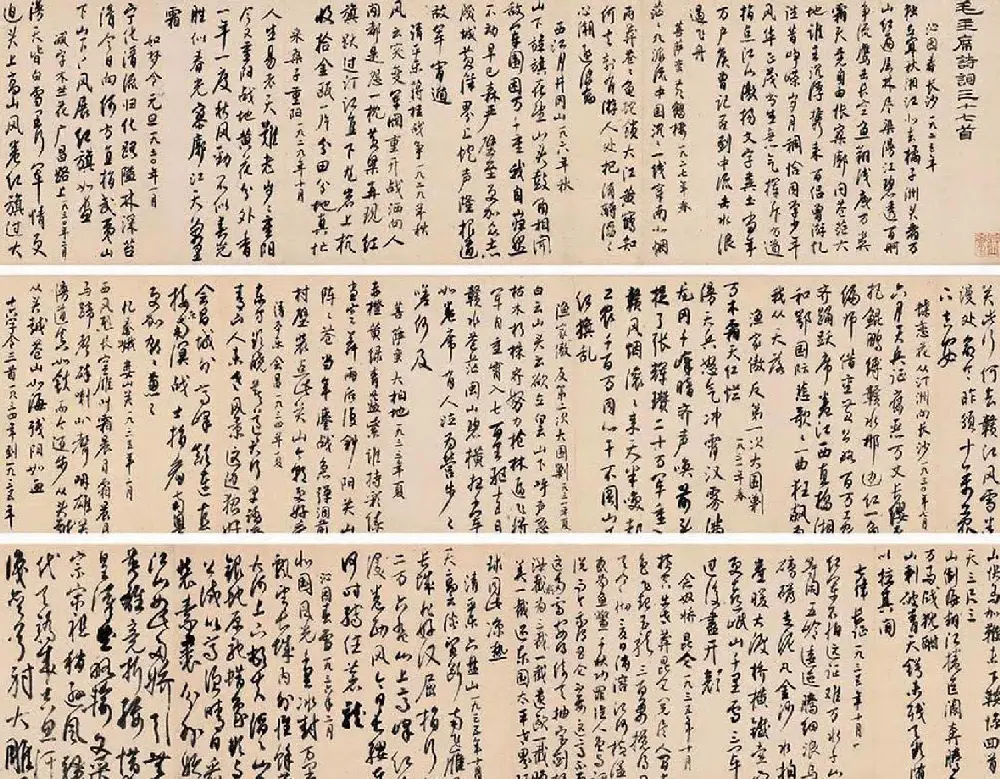 毛主席詩詞三十七首
沁园春 长沙 一九二五年
独立寒秋湘江北去橘子洲头看万
山红遍层林尽染漫江碧透百舸
争流鹰击长空鱼翔浅底万类
霜天竞自由怅寥廓问苍茫大
地谁主沉浮携来百侣曾游忆
往昔峥嵘岁月稠恰同学少年
风华正茂书生意气挥斥方遒
指点江山激扬文字粪土当年
万户侯曾记否到中流击水浪
遏飞舟
菩萨蛮 黄鹤楼 一九二七年春
茫茫九派流中国沉沉一线穿南北烟
雨莽苍苍龟蛇锁大江黄鹤知
何去剩有游人处把酒酹滔滔
心潮逐浪高
西江月 井冈山 一九二八年秋
山下旌旗在望山头鼓角相闻
敌军围困万千重我自岿然
不动早已森严壁垒更加众志
成城黄洋界上炮声隆报道
敌军宵遁
清平乐 蒋桂战争 一九二九年秋
风云突变军阀重开战洒向人
间都是怨一枕黄粱再现红
旗跃过汀江直下龙岩上杭
收拾金瓯一片分田分地真忙
采桑子 重阳 一九二九年十月
人生易老天难老岁岁重阳
今又重阳战地黄花分外香
一年一度秋风劲不似春光
胜似春光寥廓江天万里
霜
如梦令 元旦 一九三〇年一月
宁化清流归化路隘林深苔
滑今日向何方直指武夷山
下山下山下风展红旗如画
减字木兰花 广昌路上 一九三〇年二月
漫天皆白雪里行军情更
迫头上高山风卷红旗过大
关此行何去赣江风雪
漫处命令昨颁十万工农
下吉安
蝶恋花 从汀州向长沙 一九三〇年七月
六月天兵征腐恶万丈长缨要
把鲲鹏缚赣水那边红一角
偏师借重黄公略百万工农
齐踊跃席卷江西直捣湘
和鄂国际悲歌一曲狂飙
为我从天落
渔家傲 反第一次大围剿 一九三一年春
万木霜天红烂
漫天兵怒气冲霄汉雾满
龙冈千嶂暗齐声唤前头
捉了张辉瓒二十万军重入
赣风烟滚滚来天半唤起
工农千百万同心干不周山
下红旗乱
渔家傲 反第二次大围剿 一九三一年夏
白云山头云欲立白云山下呼声急
枯木朽株齐努力枪林逼飞将
军自重霄入七百里驱十五日
赣水苍茫闽山碧横扫千军
如卷席有人泣为营步步
嗟何及
菩萨蛮 大柏地 一九三三年夏
赤橙黄绿青蓝紫谁持彩练
当空舞雨后复斜阳关山
阵阵苍当年鏖战急弹洞前
村壁装点此关山今朝更好看
清平乐 会昌 一九三四年夏
东方欲晓莫道君行早踏遍
青山人未老风景这边独好
会昌城外高峰颠连直
接东溟战士指看南粤
更加郁郁葱葱
忆秦娥 娄山关 一九三五年二月
西风烈长空雁叫霜晨月霜晨月
马蹄声碎喇叭声咽雄关
漫道真如铁而今迈步从头越
从头越苍山如海残阳如血
十六字令三首 一九三四年到一九三五年
山快马加鞭未下鞍惊回首离
天三尺三
山倒海翻江卷巨澜奔腾急
万马战犹酣
山刺破青天锷未残天欲堕赖
以拄其间
七律 长征 一九三五年十月
红军不怕远征难万水千山
只等闲五岭逶迤腾细浪乌蒙
磅礴走泥丸金沙水拍云
崖暖大渡桥横铁索寒
更喜岷山千里雪三军
过后尽开颜
念奴娇 昆仑 一九三五年十月
横空出世莽昆仑阅尽人间春
色飞起玉龙三百万搅得周
天寒彻夏日消溶江河横溢
人或为鱼鳖千秋功罪谁人曾与评
说而今我谓昆仑不要这高
不要这多雪安得倚天抽宝剑把
汝裁为三截一截遗欧一截赠
美一截还东国太平世界环
球同此凉热
清平乐 六盘山 一九三五年十月
天高云淡望断南飞雁不到
长城非好汉屈指行程
二万六盘山上高峰红旗
漫卷西风今日长缨在手
何时缚住苍龙
沁园春 雪 一九三六年二月
北国风光千里冰封万里雪
飘望长城内外惟余莽莽
大河上下顿失滔滔山舞
银蛇原驰蜡象欲与天
公试比高须晴日看红
装素裹分外妖娆
江山如此多娇引无数
英雄竞折腰惜秦
皇汉武略输文采唐
宗宋祖稍逊风骚一
代天骄成吉思汗只
识弯弓射大雕